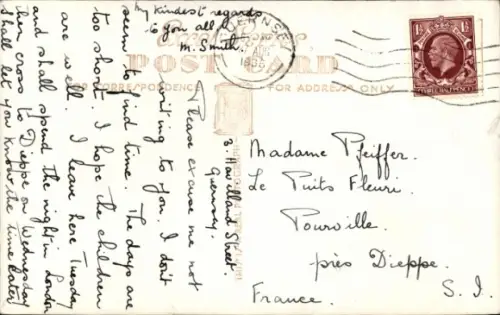 My kindest regards
to you all
M. Smith.
GUERNSEY
1935
POST CARD
FOR CORRESPONDENCE
FOR ADDRESS ONLY
3. Havilland Street
Guernsey.
Please excuse me not
writing to you. I don't
seem to find time. The days are
too short. I hope the children
are well. I leave here Tuesday
and shall spend the night in London
then cross to Dieppe on Wednesday
I shall let you know the time later
Madame Pfeiffer.
Le Puits Fleuri.
Pourville.
près Dieppe.
France. S. I.